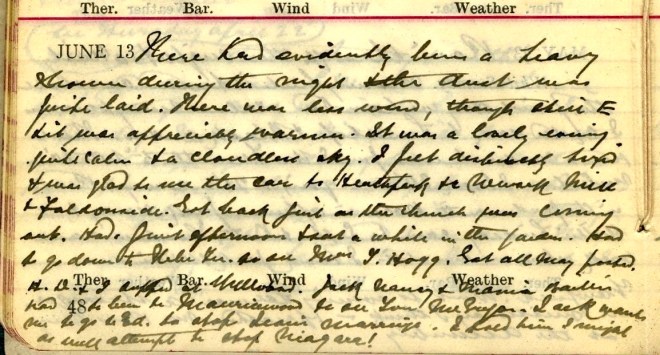 Ther. Bar. Wind Weather
JUNE 13 There had evidently been a heavy
shower during the night & the dust was
quite laid. There was less wind, though still E
& it was appreciably warmer. It was a lovely evening
quite calm & a cloudless sky. I felt distinctly tired
& was glad to use the car to Heathpark to Newark Mill
& Falsonside. Got back just as the church was coming
out. Had quiet afternoon & sat a while in the garden. Had
to go down to to see Mrs T. Hogg. Got all May posted.
Ther. Bar. Wind Weather
H. D. & I supped at Millwood. Jack Nancy &
48 had to be in to see Tom McGregor. Jack wants
me to go to Ed. to stop marriage. I told him I might
as well attempt to stop Niagara!